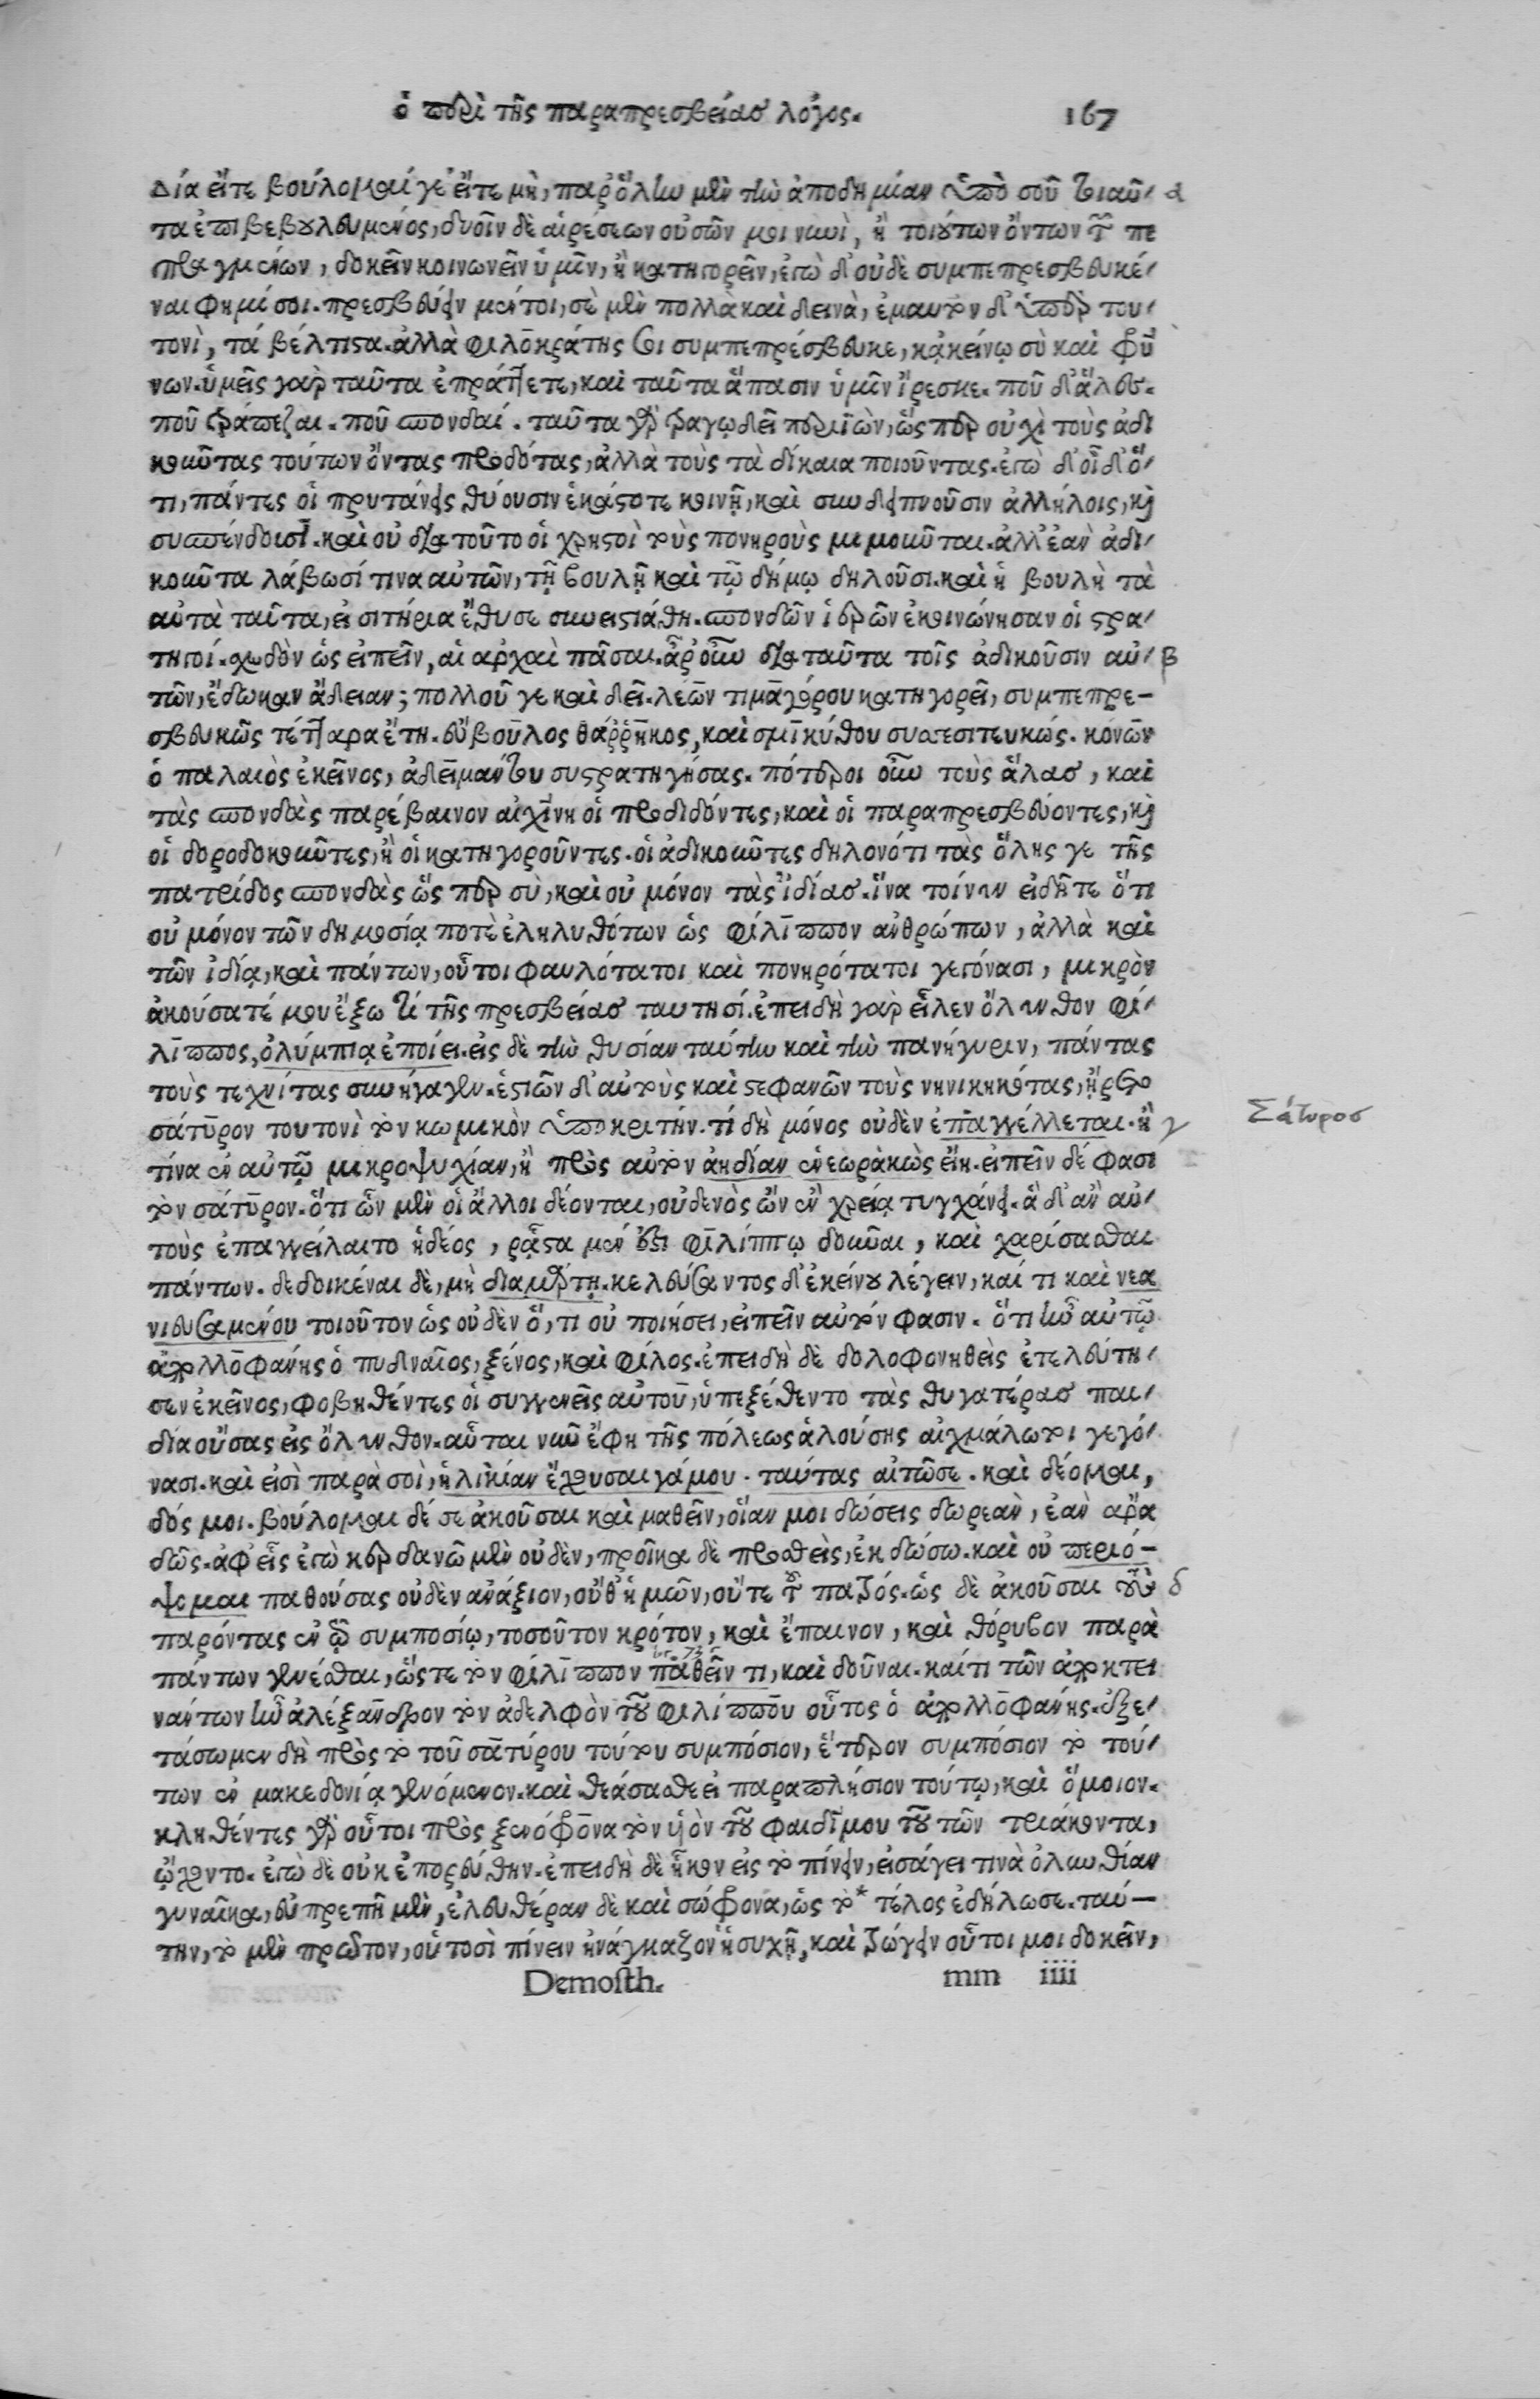 ὁ περὶ τῆς παραπρεσβείας λόγος. 167
δία εἴτε βούλομαί γε εἴτε μὴ, παρ' ὅλην μὲν τὴν ἀποδημίαν ὑπὸ σοῦ τοιαῦ- α
τα ἐπιβεβουλευμένος, δυοῖν δὲ αἱρέσεων οὐσῶν μοι νυνὶ, ἢ τοιούτων ὄντων τῶν πε
πραγμένων, δοκεῖν κοινωνεῖν ὑμῖν, ἢ κατηγορεῖν, ἐγὼ δ' οὐδὲ συμπεπρεσβευκέ-
ναι φημί σοι. πρεσβεύειν μέντοι, σὲ μὲν πολλὰ καὶ δεινὰ, ἐμαυτὸν δ' ὑπὲρ του-
τονὶ, τά βέλτιστα. ἀλλὰ φιλοκράτης σοι συμπεπρέσβευκε, κᾀκείνῳ σὺ καὶ φρύ
νων. ὑμεῖς γὰρ ταῦτα ἐπράττετε, καὶ ταῦτα ἅπασιν ὑμῖν ἤρεσκε. ποῦ δ' ἅλες.
ποῦ τράπεζαι. ποῦ σπονδαί. ταῦτα γὰρ τραγῳδεῖ περιϊὼν, ὥσπερ οὐχὶ τοὺς ἀδι
κοῦντας τούτων ὄντας προδότας, ἀλλὰ τοὺς τὰ δίκαια ποιοῦντας. ἐγὼ δ' οἶδ' ὅ-
τι, πάντες οἱ πρυτάνεις θύουσιν ἑκάστοτε κοινῇ, καὶ συνδειπνοῦσιν ἀλλήλοις, καὶ
συσπένδουσι. καὶ οὐ διὰ τοῦτο οἱ χρηστοὶ τοὺς πονηροὺς μιμοῦνται. ἀλλ' ἐὰν ἀδι-
κοῦντα λάβωσί τινα αὐτῶν, τῇ βουλῇ καὶ τῷ δήμῳ δηλοῦσι. καὶ ἡ βουλὴ τὰ
αὐτὰ ταῦτα, εἰσιτήρια ἔθυσε συνειστιάθη. σπονδῶν ἱερῶν ἐκοινώνησαν οἱ στρα-
τηγοί. σχεδὸν ὡς εἰπεῖν, αἱ ἀρχαὶ πᾶσαι. ἆρ' οὖν διὰ ταῦτα τοῖς ἀδικοῦσιν αὐ- β
τῶν, ἔδωκαν ἄδειαν; πολλοῦ γε καὶ δεῖ. λέων τιμαγόρου κατηγορεῖ, συμπεπρε-
σβευκὼς τέτταρα ἔτη. εὔβουλος θάῤῥηκος, καὶ σμικύθου συσσεσιτευκώς. κόνων
ὁ παλαιὸς ἐκεῖνος, ἀδειμάντου συστρατηγήσας. πότεροι οὖν τοὺς ἅλας, καὶ
τὰς σπονδὰς παρέβαινον αἰσχίνη οἱ προδιδόντες, καὶ οἱ παραπρεσβεύοντες, καὶ
οἱ δοροδοκοῦντες, ἢ οἱ κατηγοροῦντες. οἱ ἀδικοῦντες δηλονότι τὰς ὅλης γε τῆς
πατρίδος σπονδὰς ὥσπερ σὺ, καὶ οὐ μόνον τὰς ἰδίας. ἵνα τοίνυν εἰδῆτε ὅτι
οὐ μόνον τῶν δημοσίᾳ ποτὲ ἐληλυθότων ὡς φίλιππον ἀνθρώπων, ἀλλὰ καὶ
τῶν ἰδίᾳ, καὶ πάντων, οὗτοι φαυλότατοι καὶ πονηρότατοι γεγόνασι, μικρὸν
ἀκούσατέ μου ἔξω τι τῆς πρεσβείας ταυτησί. ἐπειδὴ γὰρ εἷλεν ὄλυνθον φί-
λιππος, ὀλύμπια ἐποίει. εἰς δὲ τὴν θυσίαν ταύτην καὶ τὴν πανήγυριν, πάντας
τοὺς τεχνίτας συνήγαγεν. ἑστιῶν δ' αὐτοὺς καὶ στεφανῶν τοὺς νηνικηκότας, ἤρετο
σάτυρον τουτονὶ τὸν κωμικὸν ὑποκριτήν. τί δὴ μόνος οὐδὲν ἐπαγγέλλεται. ἢ γ
Σάτυρος
τίνα ἐν αὐτῷ μικροψυχίαν, ἢ πρὸς αὐτὸν ἀηδίαν ἐνεωρακὼς εἴη. εἰπεῖν δέ φασι
τὸν σάτυρον. ὅτι ὧν μὲν οἱ ἄλλοι δέονται, οὐδενὸς ὢν ἐν χρείᾳ τυγχάνει. ἃ δ' ἂν αὐ-
τοὺς ἐπαγγείλαιτο ἡδέος, ῥᾷστα μέν ἐστι φιλίππῳ δοῦναι, καὶ χαρίσασθαι
πάντων. δεδοικέναι δὲ, μὴ διαμάρτῃ. κελεύσαντος δ' ἐκείνου λέγειν, καί τι καὶ νεα
νιευσαμένου τοιοῦτον ὡς οὐδὲν ὅ, τι οὐ ποιήσει, εἰπεῖν αὐτόν φασιν. ὅτι ἦν αὐτῷ
ἀπολλοφάνης ὁ πυδναῖος, ξένος, καὶ φίλος. ἐπειδὴ δὲ δολοφονηθεὶς ἐτελεύτη-
σεν ἐκεῖνος, φοβηθέντες οἱ συγγενεῖς αὐτοῦ, ὑπεξέθεντο τὰς θυγατέρας παι-
δία οὔσας εἰς ὄλυνθον. αὗται νῦν ἔφη τῆς πόλεως ἁλούσης αἰχμάλωτοι γεγό-
νασι. καὶ εἰσὶ παρὰ σοὶ, ἡλικίαν ἔχουσαι γάμου. ταύτας αἰτῶ σε. καὶ δέομαι,
δός μοι. βούλομαι δέ σε ἀκοῦσαι καὶ μαθεῖν, οἵαν μοι δώσεις δωρεὰν, ἐὰν ἄρα
δῷς. ἀφ' ἧς ἐγὼ κερδανῶ μὲν οὐδὲν, προῖκα δὲ προσθεὶς, ἐκδώσω. καὶ οὐ περιό-
ψομαι παθούσας οὐδὲν ἀνάξιον, οὔθ' ἡμῶν, οὔτε τοῦ πατρός. ὡς δὲ ἀκοῦσαι τοὺς δ
παρόντας ἐν τῷ συμποσίῳ, τοσοῦτον κρότον, καὶ ἔπαινον, καὶ θόρυβον παρὰ
πάντων γενέσθαι, ὥστε τὸν φίλιππον παθεῖν τι, καὶ δοῦναι. καίτι τῶν ἀποκτει
νάντων ἦν ἀλέξανδρον τὸν ἀδελφὸν τοῦ φιλίππου οὗτος ὁ ἀπολλοφάνης. ἐξε-
τάσωμεν δὴ πρὸς τὸ τοῦ σατύρου τούτου συμπόσιον, ἕτερον συμπόσιον τὸ τού-
των ἐν μακεδονίᾳ γενόμενον. καὶ θεάσασθε εἰ παραπλήσιον τούτῳ, καὶ ὅμοιον.
κληθέντες γὰρ οὗτοι πρὸς ξενόφρονα τὸν υἱὸν τοῦ φαιδίμου τοῦ τῶν τριάκοντα,
ᾤχοντο. ἐγὼ δὲ οὐκ ἐπορεύθην. ἐπειδὴ δὲ ἧκον εἰς τὸ πίνειν, εἰσάγει τινὰ ὀλυνθίαν
γυναῖκα, εὐπρεπῆ μὲν, ἐλευθέραν δὲ καὶ σώφρονα, ὡς τὸ* τέλος ἐδήλωσε. ταύ-
την, τὸ μὲν πρῶτον, οὑτοσὶ πίνειν ἠνάγκαζον ἡσυχῇ, καὶ τρώγειν οὗτοι μοι δοκεῖν,
Demosth. mm iiii